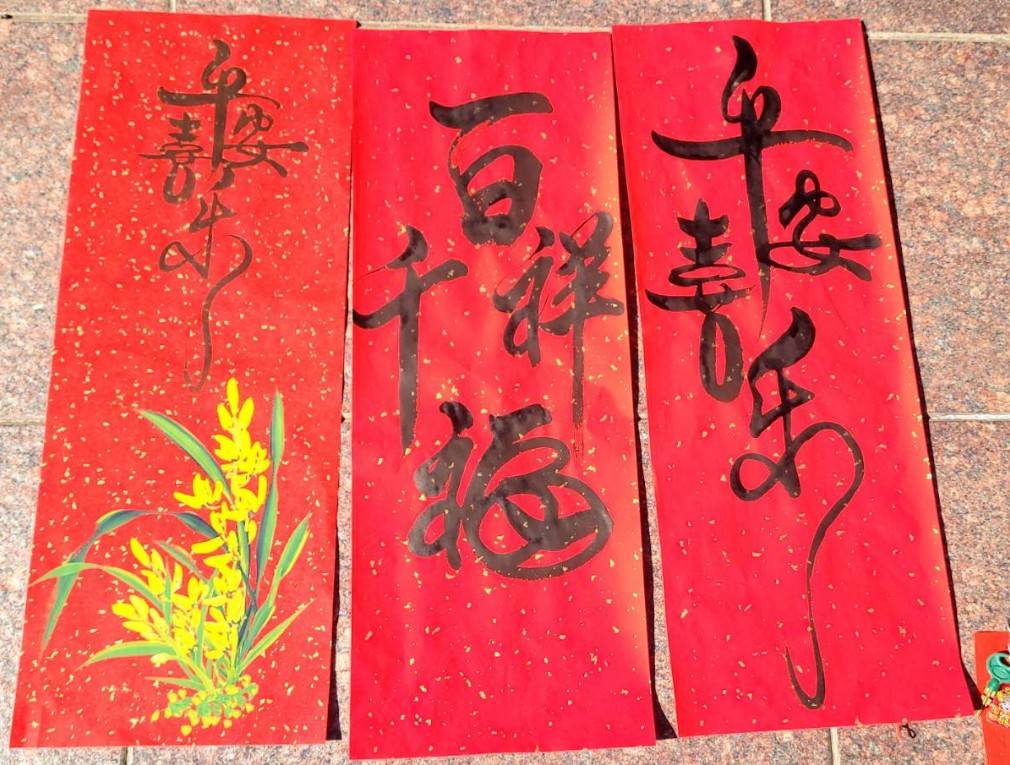 平安喜樂
百祥千福
平安喜樂